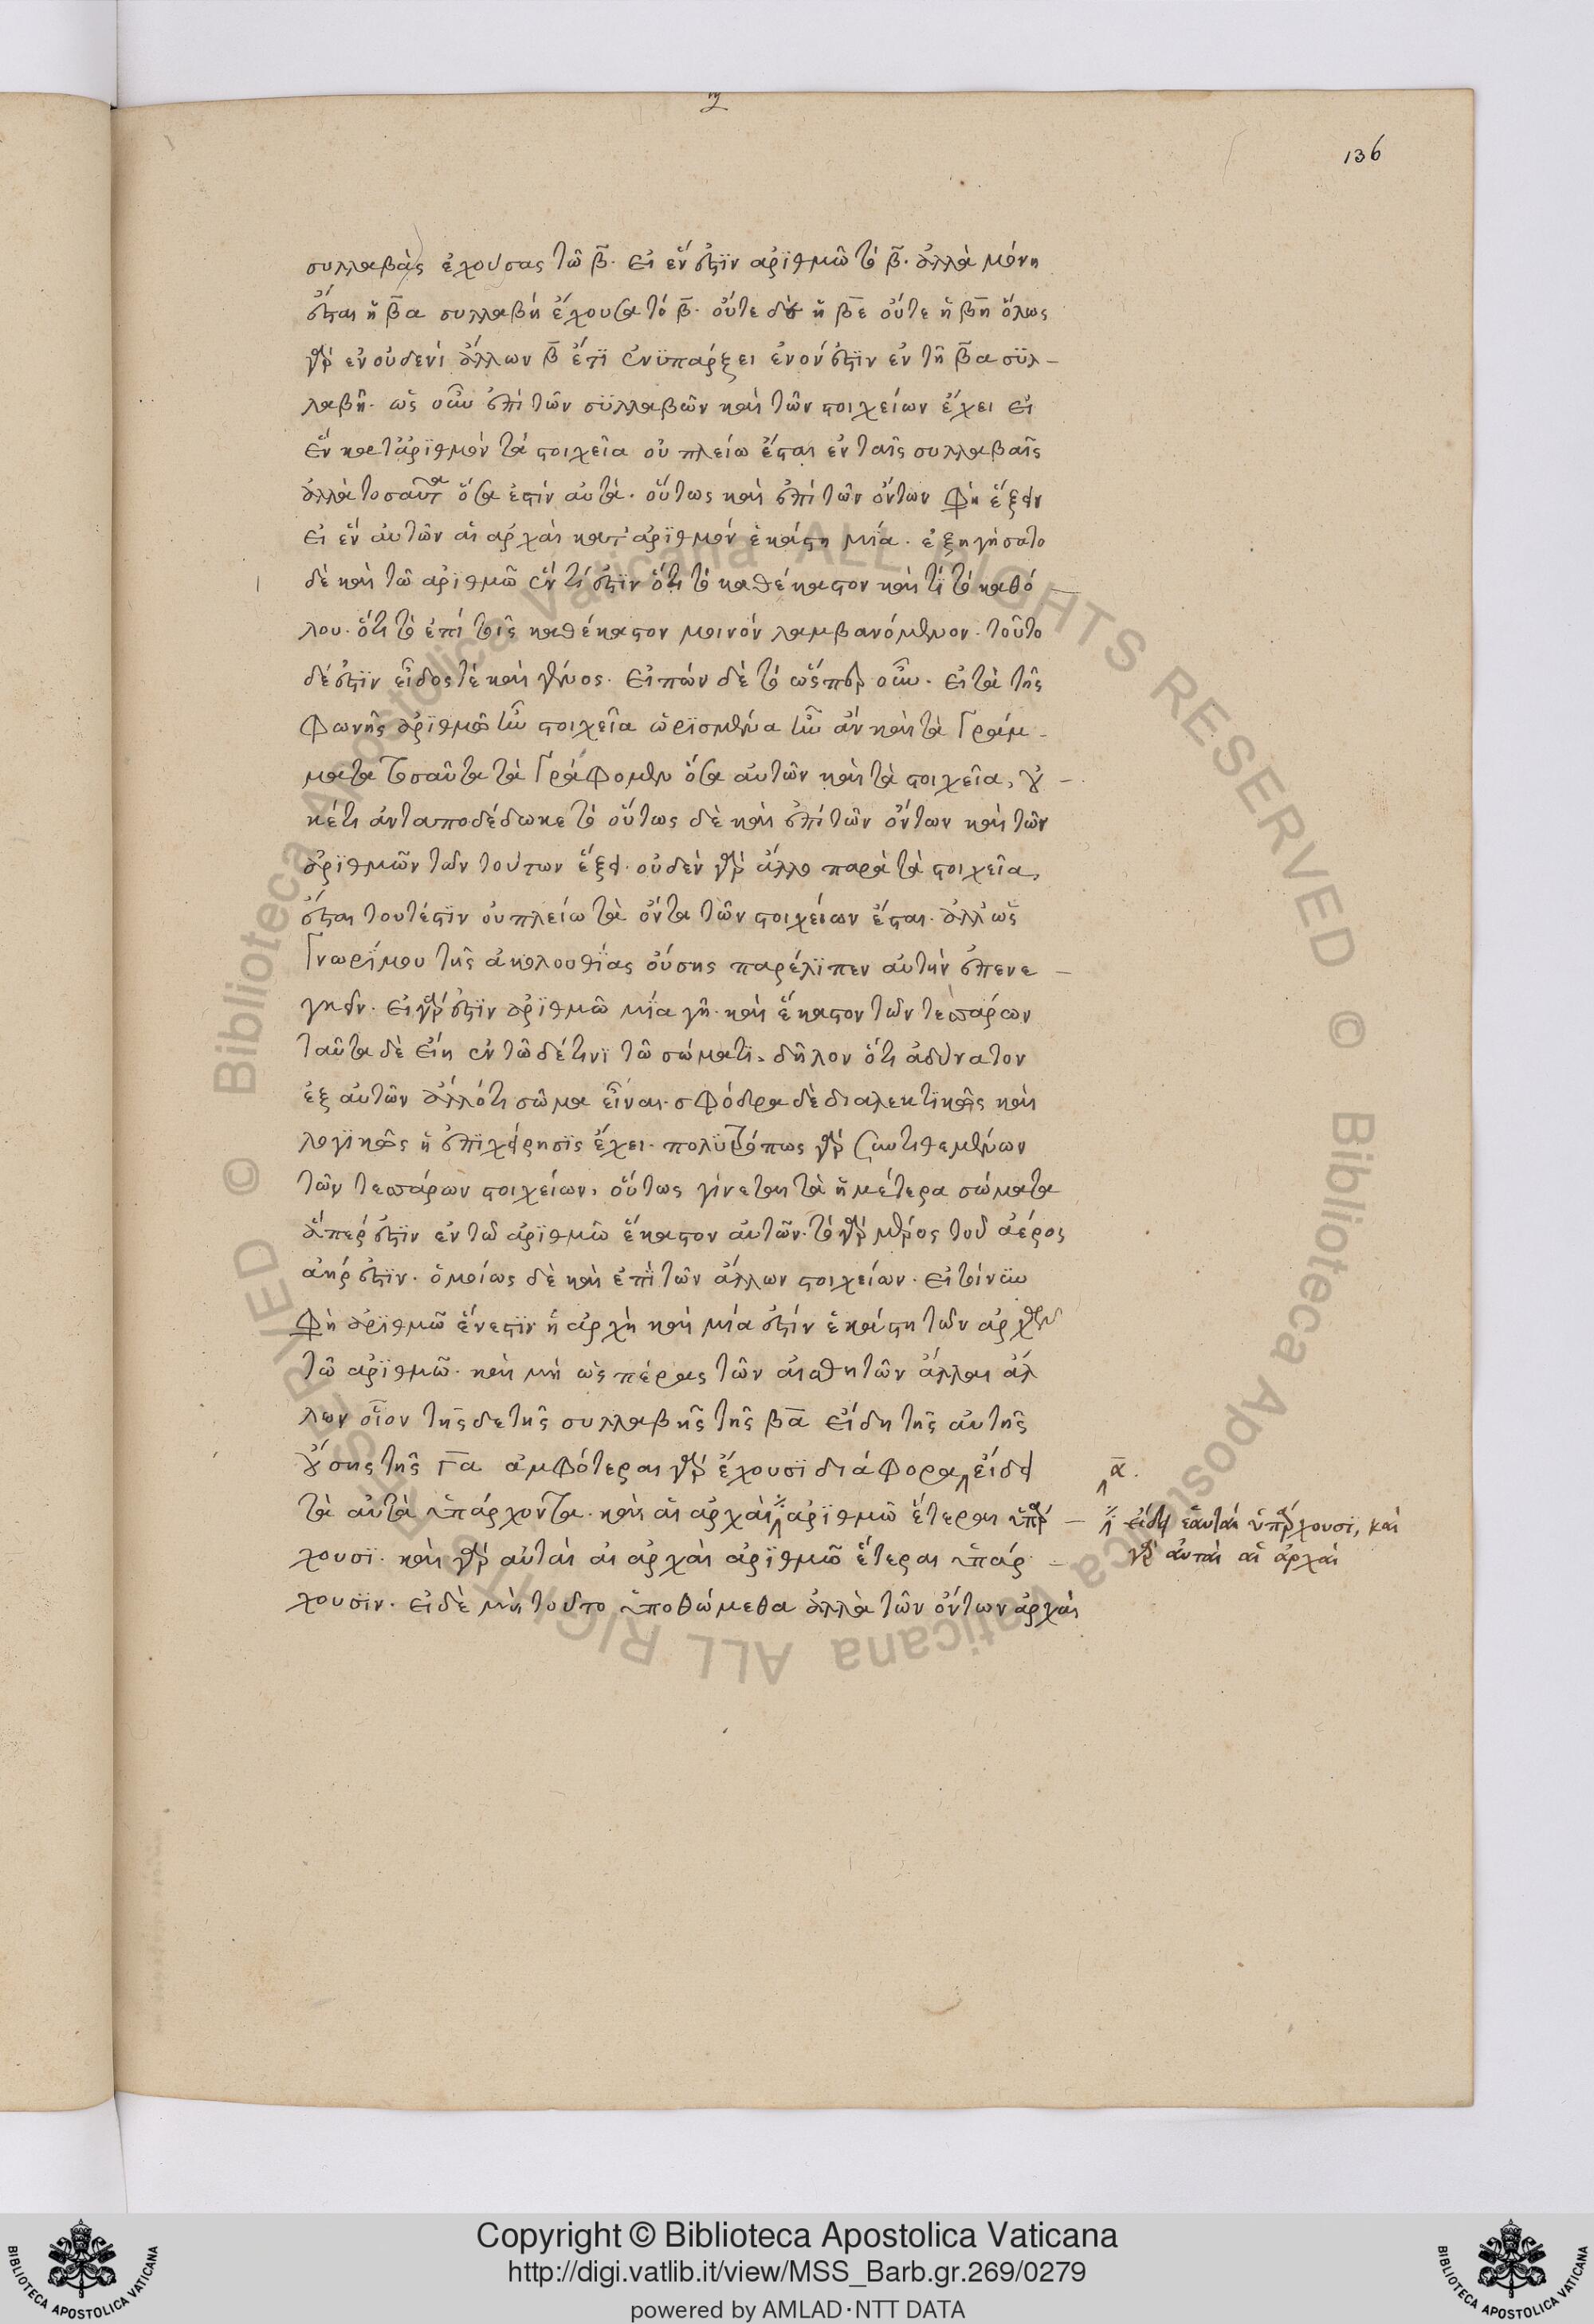 136
συλλαβὰς ἐχούσας τῶ β̄. εἰ ἕν ἐστϊν ἀρϊθμῶ τὸ β̄. ἀλλὰ μόνη
ἔσται ἡ β̄α συλλαβὴ ἔχουσα τὸ β̄. οὔτε δὲ ἡ β̄ε οὔτε ἡ β̄η ὅλως
γὰρ ἐν οὐδενὶ ἄλλων β̄ ἔτϊ ἐνϋπάρξει ἑνόν ἐστϊν ἐν τῆ β̄α σϋλ-
λαβῆ. ὡς οὖν ἐπὶ τῶν σϋλλαβῶν καὶ τῶν στοιχείων ἔχει εἰ
ἓν κατ' ἀρϊθμὸν τὰ στοιχεῖα οὐ πλείω ἔσται ἐν ταῖς συλλαβαῖς
ἀλλὰ τοσαῦτα ὅσα ἐστὶν αὐτά. οὕτως καὶ ἐπὶ τῶν ὄντων φὴ ἕξειν
εἰ ἓν αὐτῶν αἱ ἀρχαὶ κατ' ἀρϊθμὸν ἑκάστη μία. ἐξηγήσατο
δὲ καὶ τῶ ἀρϊθμῶ ἓν τί ἐστϊν ὅτι τὸ καθέκαστον καὶ τϊ τὸ καθό
λου. ὅτι τὸ ἐπὶ τοῖς καθέκαστον κοινὸν λαμβανόμενον. τοῦτο
δέ ἐστϊν εἶδος τὲ καὶ γένος. εἰπὼν δὲ τὸ ὥσπερ οὖν. εἰ τὰ τῆς
φωνῆς ἀρϊθμῶ ἦν στοιχεῖα ὡρϊσμένα ἦν ἂν καὶ τὰ γράμ-
ματα τοσαῦτα τὰ γράφομεν ὅσα αὐτῶν καὶ τὰ στοιχεῖα, οὐ-
κέτι ἀνταποδέδωκε τὸ οὕτως δὲ καὶ ἐπὶ τῶν ὄντων καὶ τῶν
ἀρϊθμῶν τῶν τούτων ἕξει. οὐδὲν γὰρ ἄλλο παρὰ τὰ στοιχεῖα,
ἔσται τουτέστϊν οὐ πλείω τὰ ὄντα τῶν στοιχείων ἔσται. ἀλλ' ὡς
γνωρίμου τῆς ἀκολουθίας οὔσης παρέλϊπεν αὐτὴν ἐπενε-
γκεῖν. εἰ γάρ ἐστϊν ἀρϊθμῶ μία γῆ. καὶ ἕκαστον τῶν τεσσάρων
ταῦτα δὲ εἴη ἐν τῶδέ τινϊ τῶ σώματϊ, δῆλον ὅτι ἀδύνατον
ἐξ αὐτῶν ἄλλό τι σῶμα εἶναι. σφόδρα δὲ διαλεκτϊκῶς καὶ
λογϊκῶς ἡ ἐπϊχείρησϊς ἔχει. πολϋτρόπως γὰρ συντιθεμένων
τῶν τεσσάρων στοιχείων, οὕτως γίνεται τὰ ἡμέτερα σώματα
ἅπερ ἐστϊν ἐν τῶ ἀρϊθμῶ ἕκαστον αὐτῶν. τὸ γὰρ μέρος τοῦ ἀέρος
ἀήρ ἐστϊν. ὁμοίως δὲ καὶ ἐπὶ τῶν ἄλλων στοιχείων. εἰ τοίνϋν
φὴ ἀρϊθμῶ ἕνεστϊν ἡ ἀρχὴ καὶ μία ἐστὶν ἑκάστη τῶν ἀρχῶν
τῶ ἀρϊθμῶ. καὶ μὴ ὥσπερ ὡς τῶν αἰσθητῶν ἄλλαι ἀλ
λων οἷον τῆσδε τῆς συλλαβῆς τῆς βᾱ εἴδη τῆς αὐτῆς
οὔσης τῆς γ̄α ἀμφότεραι γὰρ ἔχουσϊ διάφορα εἴδει
τὰ αὐτὰ ὑπάρχοντα. καὶ αἱ ἀρχαὶ ἀρϊθμῶ ἕτεραι ὑπάρ-
χουσϊ. καὶ γὰρ αὐταὶ αἱ ἀρχαὶ ἀρϊθμῶ ἕτεραι ὑπάρ-
χουσϊν. εἰ δὲ μὴ τοῦτο ὑποθώμεθα ἀλλὰ τῶν ὄντων ἀρχὰς
ᾱ.
εἴδει ἑαυταὶ ὑπάρχουσϊ, καὶ
γὰρ αὐταὶ αἱ ἀρχαὶ
Copyright © Biblioteca Apostolica Vaticana
http://digi.vatlib.it/view/MSS_Barb.gr.269/0279
powered by AMLAD·NTT DATA
BIBLIOTECA APOSTOLICA VATICANA
BIBLIOTECA APOSTOLICA VATICANA